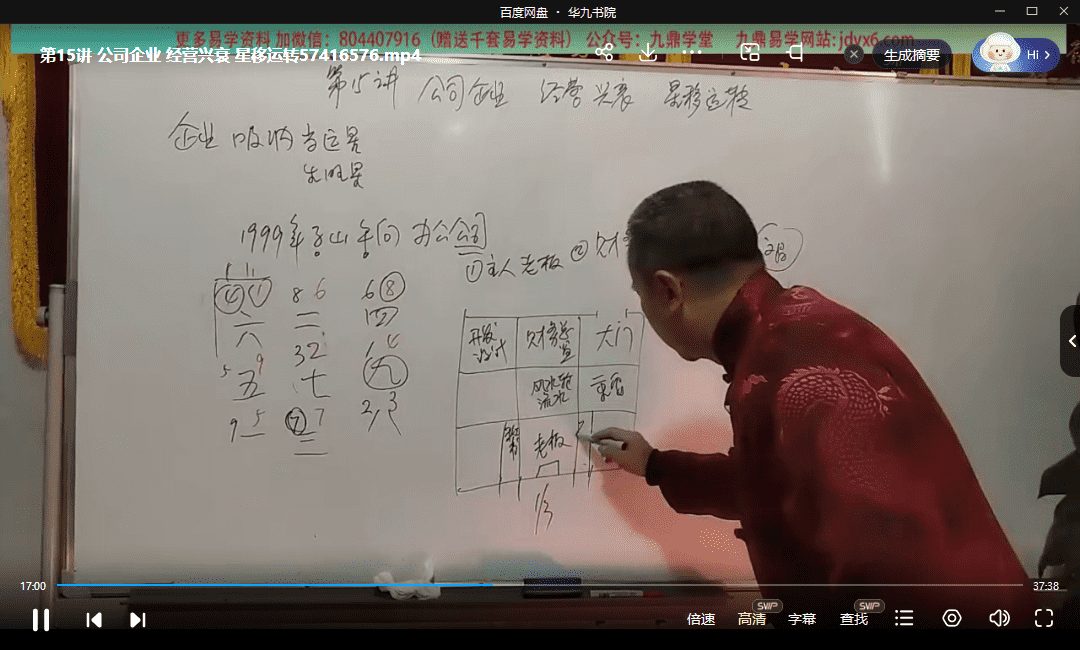 百度网盘 · 华九书院
更多易学资料 加微信：804407916（赠送千套易学资料） 公众号：九鼎学堂 九鼎易学网站:jdyx6.com
第15讲 公司企业 经营兴衰 星移运转57416576.mp4
生成摘要
Hi
第15讲 公司企业 经营兴衰 星移运转
企业 吸纳当运星
生旺星
1999年子山午向 办公公司
①主人老板 ② 财
8 6 6 8
二 四
六
3 2
5 9
五 七 九
9 5 7 7 2 3
二 三 八
开发设计 财务室 大门
风水轮 流水
老板
17:00
37:38
倍速
SVIP
高清
字幕
SVIP
查找